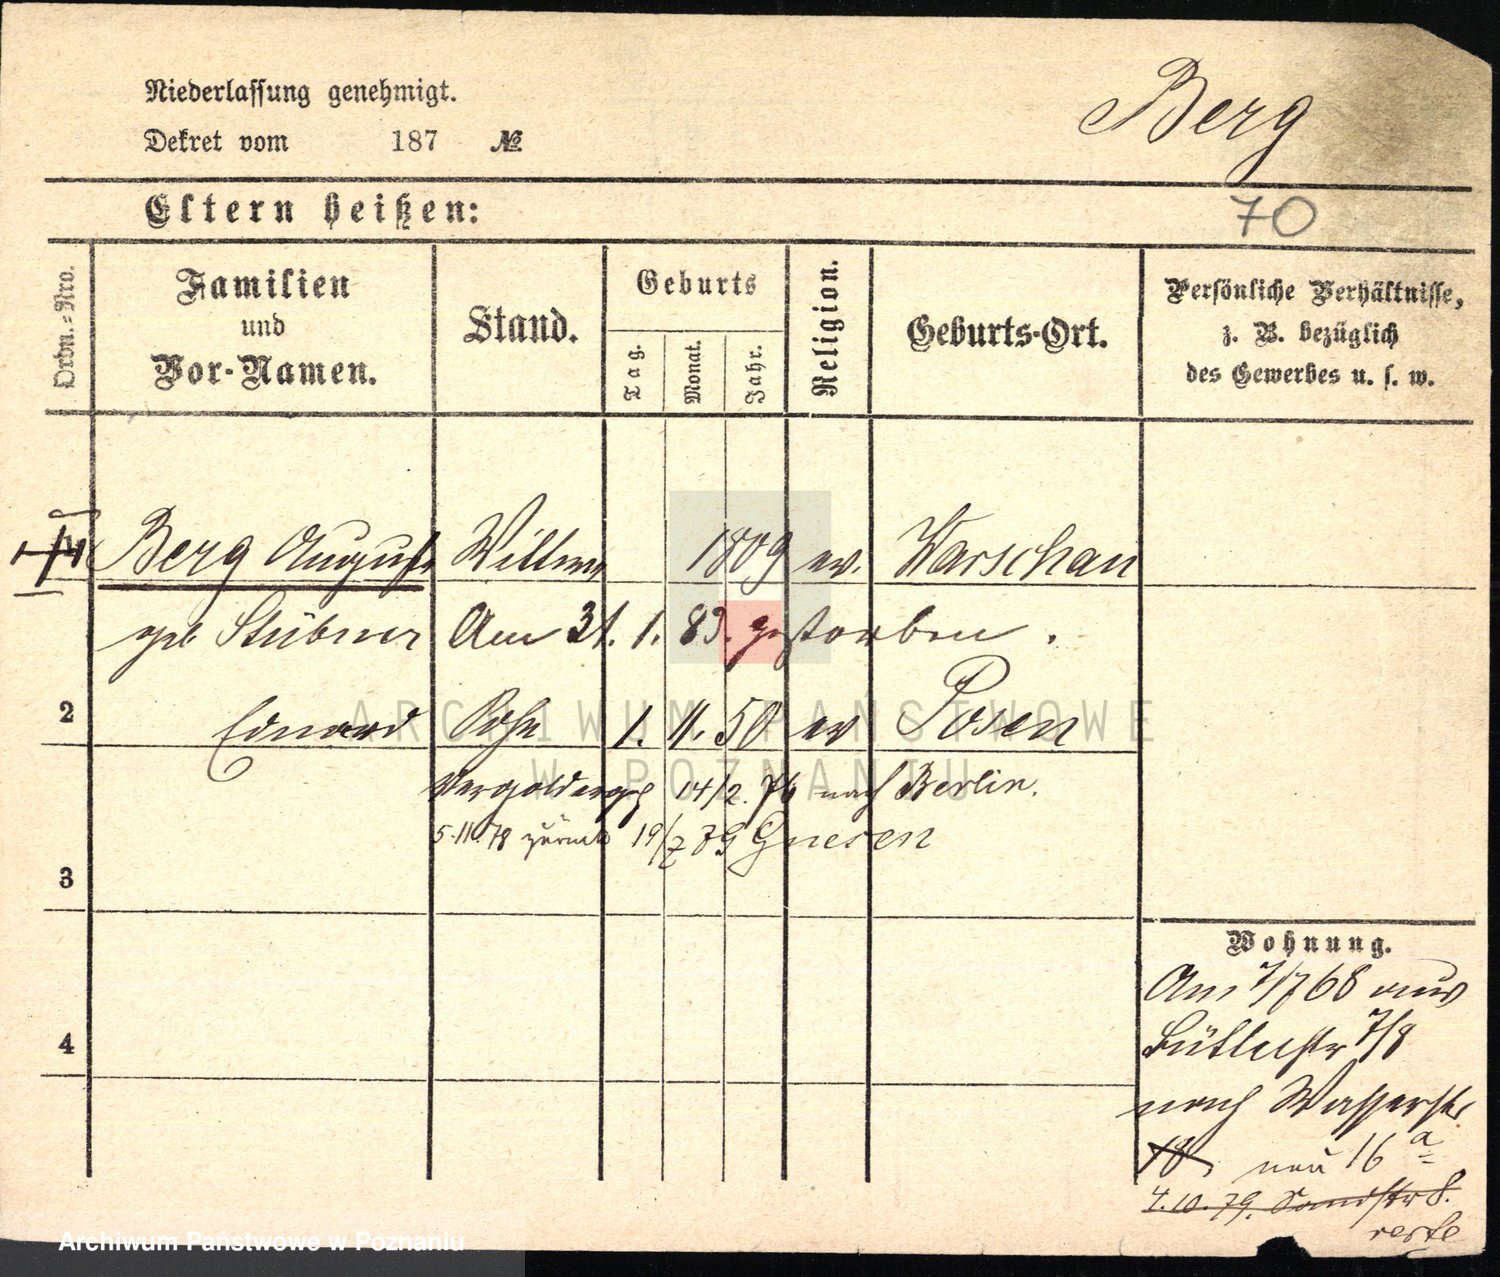 Niederlassung genehmigt.
Berg
Dekret vom 187 №
Eltern heißen:
70
Ordn.-Nro.
Familien
und
Vor-Namen.
Stand.
Geburts
Tag.
Monat.
Jahr.
Religion.
Geburts-Ort.
Persönliche Verhältnisse,
z. B. bezüglich
des Gewerbes u. s. w.
Berg August Wittwe 1809 ev. Warschau
geb Stübner Am 31. 1. 83. gestorben.
2 Eduard Sohn 1. 11. 50 ev Posen
14/2. 76 nach Berlin.
5.11.78 zurück 19/7 79 Gnesen
3
Wohnung.
Am 7/7 68 aus
Büttelstr 7/8
4
nach Wasserstr
18, neu 16 a
4.10.79. Sandstr 8.
ARCHIWUM PAŃSTWOWE
W POZNANIU
Archiwum Państwowe w Poznaniu